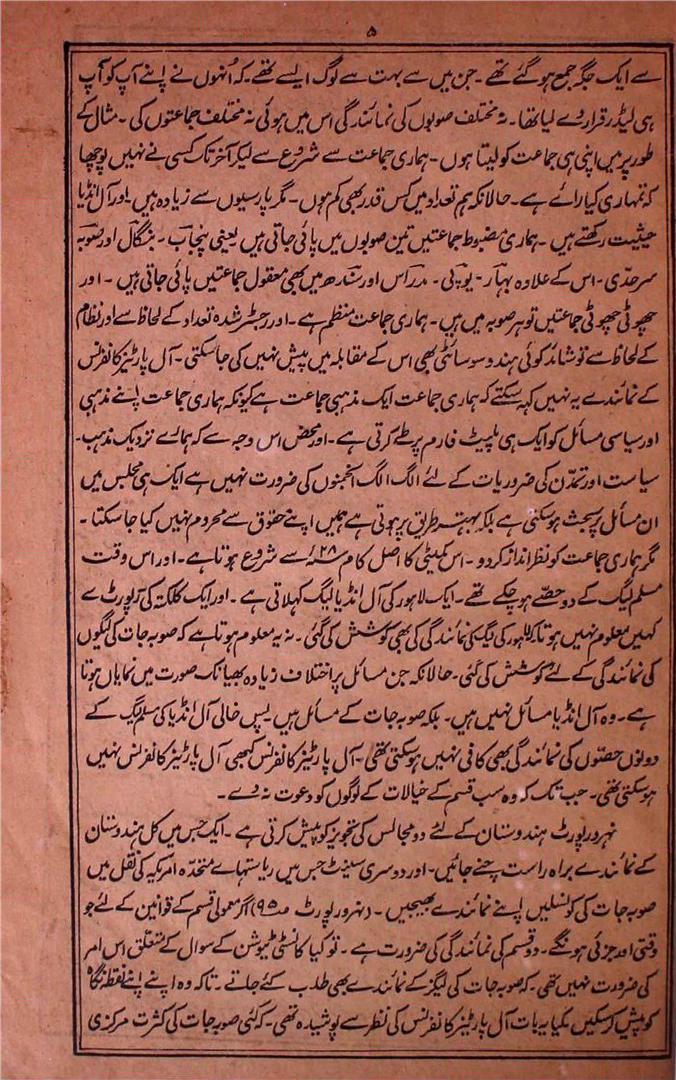 ۵
سے ایک جگہ جمع ہو گئے تھے ۔ جن میں سے بہت سے لوگ ایسے تھے ۔ کہ اُنہوں نے اپنے آپ کو آپ
ہی لیڈر قرار دے لیا تھا ۔ نہ مختلف صوبوں کی نمائندگی اس میں ہوئی نہ مختلف جماعتوں کی ۔ مثال کے
طور پر میں اپنی ہی جماعت کو لیتا ہوں ۔ ہماری جماعت سے شروع سے لیکر آخر تک کسی نے نہیں پوچھا
کہ تمہاری کیا رائے ہے ۔ حالانکہ ہم تعداد میں کس قدر بھی کم ہوں ۔ مگر پارسیوں سے زیادہ ہیں ۔ اور آل انڈیا
حیثیت رکھتے ہیں ۔ ہماری مضبوط جماعتیں تین صوبوں میں پائی جاتی ہیں یعنی پنجاب ۔ بنگال اور صوبہ
سرحدی ۔ اس کے علاوہ بہار ۔ یو ۔ پی ۔ مدراس اور سندھ میں بھی معقول جماعتیں پائی جاتی ہیں ۔ اور
چھوٹی چھوٹی جماعتیں تو ہر صوبہ میں ہیں ۔ ہماری جماعت منظم ہے ۔ اور رجسٹر شدہ تعداد کے لحاظ سے اور نظام
کے لحاظ سے تو شائد کوئی ہندو سوسائٹی بھی اس کے مقابلہ میں پیش نہیں کی جا سکتی ۔ آل پارٹیز کانفرنس
کے نمائندے یہ نہیں کہہ سکتے کہ ہماری جماعت ایک مذہبی جماعت ہے کیونکہ ہماری جماعت اپنے مذہبی
اور سیاسی مسائل کو ایک ہی پلیٹ فارم پر طے کرتی ہے ۔ اور محض اس وجہ سے کہ ہمارے نزدیک مذہب ۔
سیاست اور تمدّن کی ضروریات کے لئے الگ الگ انجمنوں کی ضرورت نہیں ہے ایک ہی مجلس میں
ان مسائل پر بحث ہو سکتی ہے بلکہ بہتر طریق پر ہوتی ہے ہمیں اپنے حقوق سے محروم نہیں کیا جا سکتا ۔
مگر ہماری جماعت کو نظر انداز کر دو ۔ اس کمیٹی کا اصل کام ۲۸ء سے شروع ہوتا ہے ۔ اور اس وقت
مسلم لیگ کے دو حصّے ہو چکے تھے ۔ ایک لاہور کی آل انڈیا لیگ کہلاتی ہے ۔ اور ایک کلکتہ کی رپورٹ سے
کہیں معلوم نہیں ہوتا کہ لاہور کی لیگ کی نمائندگی کی بھی کوشش کی گئی ۔ نہ یہ معلوم ہوتا ہے کہ صوبہ جات کی لیگوں
کی نمائندگی کے لئے کوشش کی گئی ۔ حالانکہ جن مسائل پر اختلاف زیادہ بھیانک صورت میں نمایاں ہوتا
ہے ۔ وہ آل انڈیا مسائل نہیں ہیں ۔ بلکہ صوبہ جات کے مسائل ہیں ۔ پس خالی آل انڈیا کی مسلم لیگ کے
دونوں حصّوں کی نمائندگی بھی کافی نہیں ہو سکتی تھی ۔ آل پارٹیز کانفرنس کبھی آل پارٹیز کانفرنس نہیں
ہو سکتی تھی ۔ جب تک کہ وہ سب قسم کے خیالات کے لوگوں کو دعوت نہ دے ۔
نہرو رپورٹ ہندوستان کے لئے دو مجالس کی تجویز کو پیش کرتی ہے ۔ ایک جس میں کل ہندوستان
کے نمائندے براہ راست چنے جائیں ۔ اور دوسری سینٹ جس میں ریاستہائے متحدہ امریکہ کی نقل میں
صوبہ جات کی کونسلیں اپنے نمائندے بھیجیں ۔ (نہرو رپورٹ ص۹۵) اگر معمولی قسم کے قوانین کے لئے جو
وقتی اور جزئی ہونگے ۔ دو قسم کی نمائندگی کی ضرورت ہے ۔ تو کیا کانسٹی ٹیوشن کے سوال کے متعلق اس امر
کی ضرورت نہیں تھی ۔ کہ صوبہ جات کی لیگز کے نمائندے بھی طلب کئے جاتے ۔ تاکہ وہ اپنے اپنے نقطہ نگاہ
کو پیش کر سکیں ۔ کیا یہ بات آل پارٹیز کانفرنس کی نظر سے پوشیدہ تھی ۔ کہ کئی صوبہ جات کی کثرت مرکزی